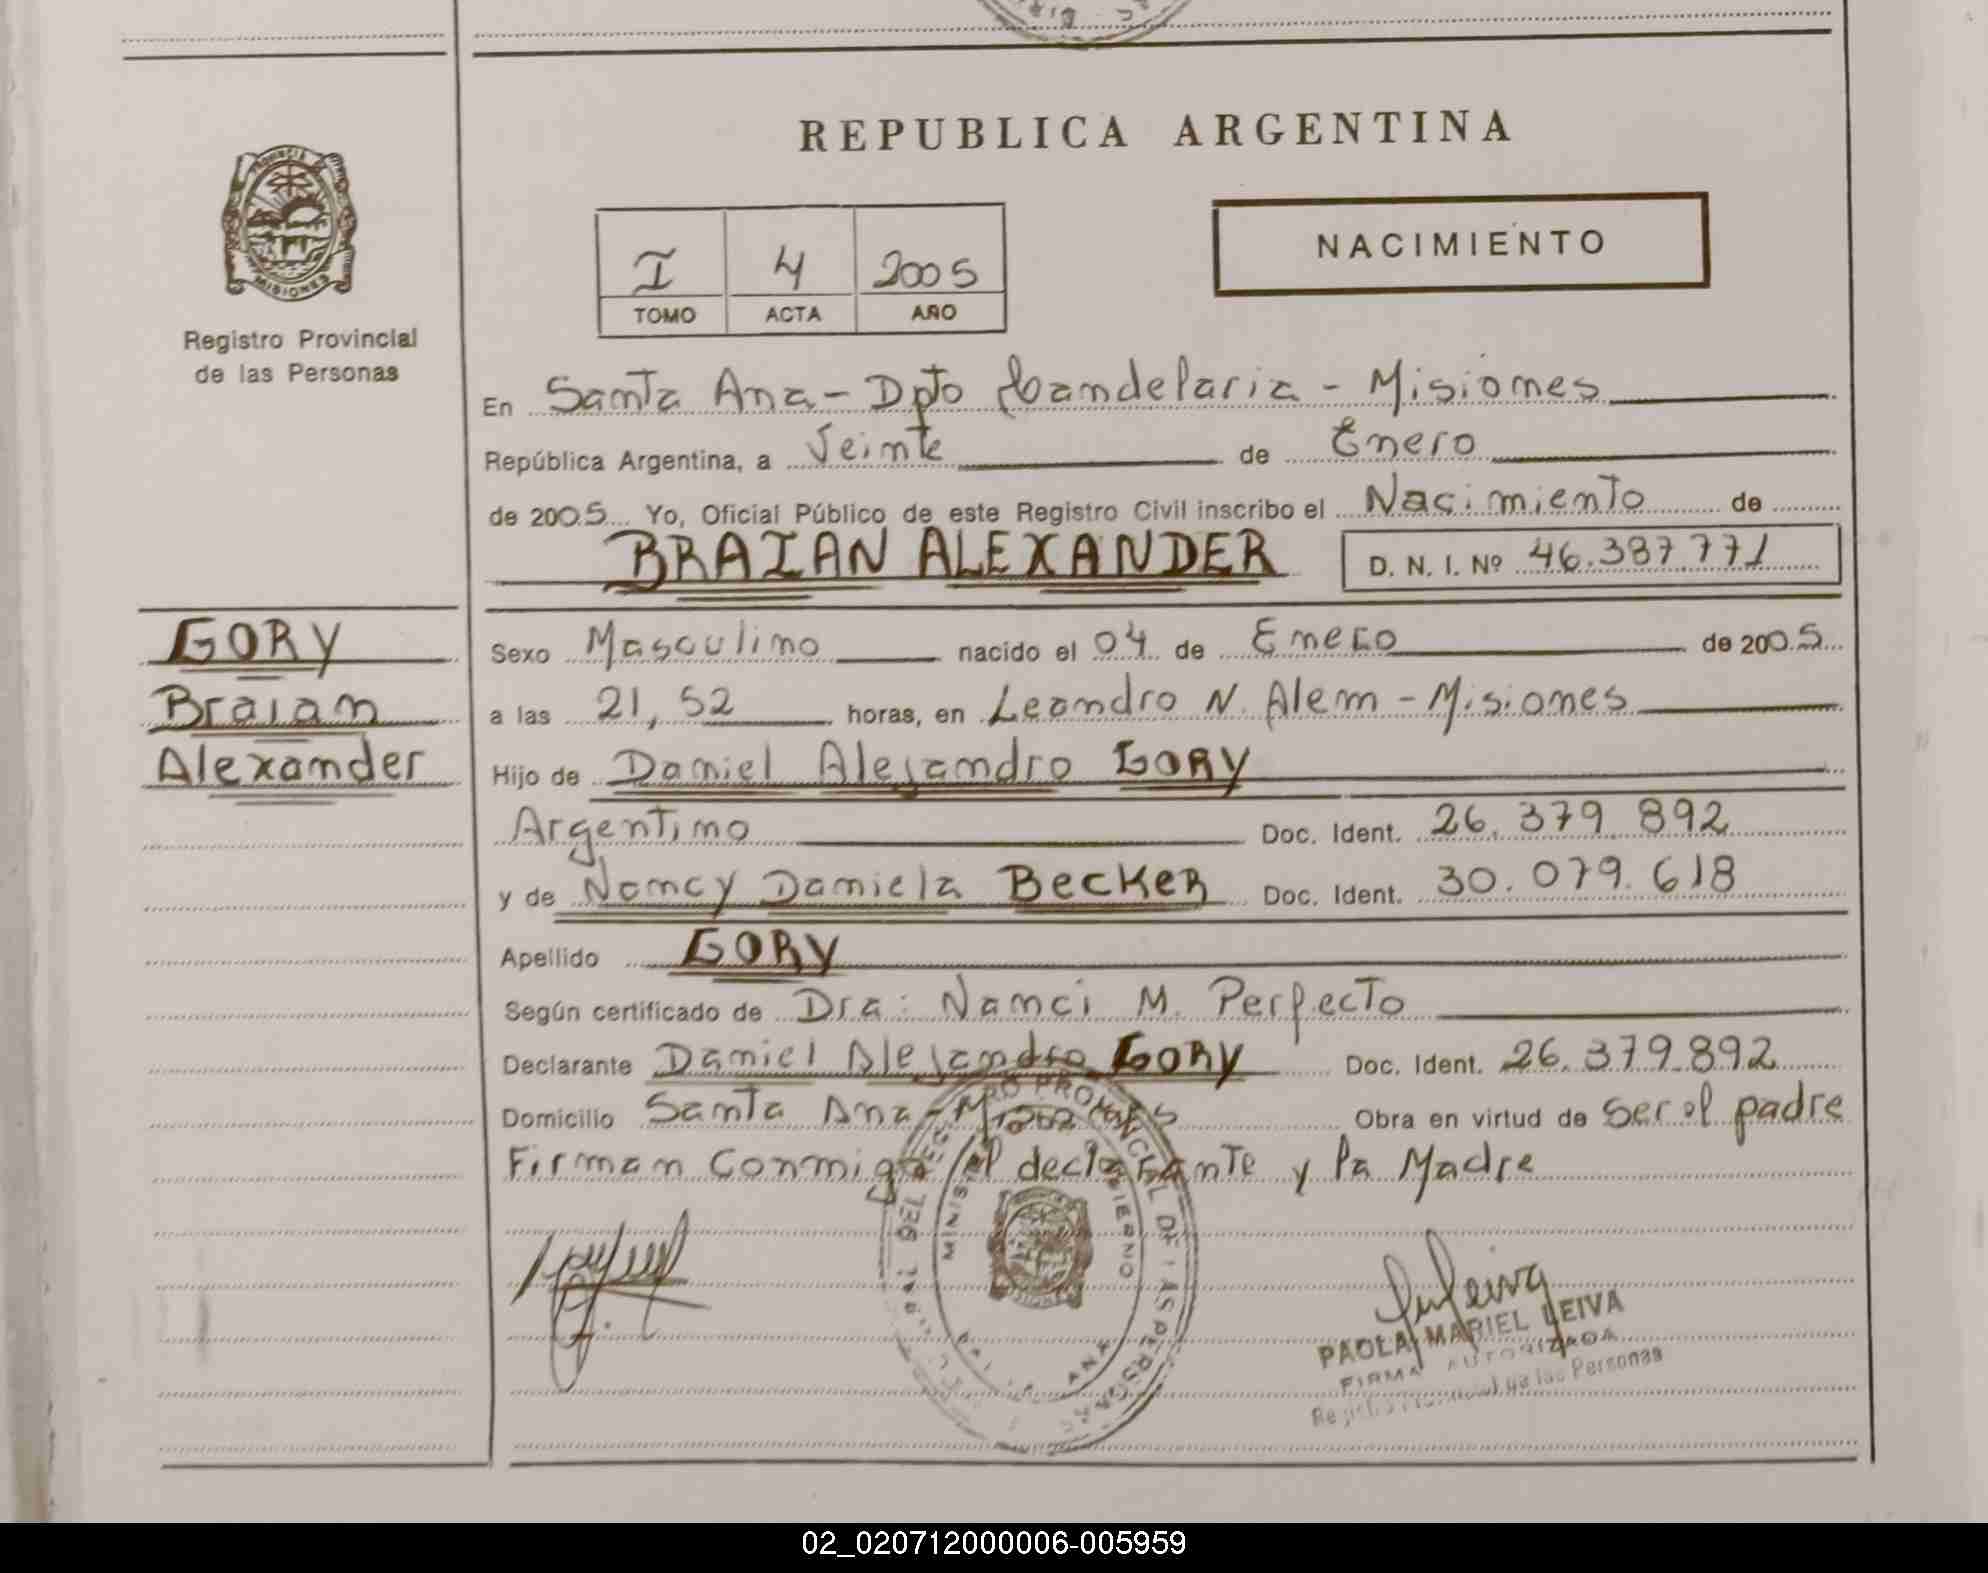 REPUBLICA ARGENTINA
PROVINCIA
MISIONES
Registro Provincial
de las Personas
I 4 2005
TOMO ACTA AÑO
NACIMIENTO
En Santa Ana - Dpto Candelaria - Misiones
República Argentina, a Veinte de Enero
de 2005 Yo, Oficial Público de este Registro Civil inscribo el Nacimiento de
BRAIAN ALEXANDER D. N. I. Nº 46.387.771
GORY
Braian
Alexander
Sexo Masculino nacido el 04 de Enero de 2005
a las 21,52 horas, en Leandro N. Alem - Misiones
Hijo de Daniel Alejandro GORY
Argentino Doc. Ident. 26.379.892
y de Nancy Daniela BECKER Doc. Ident. 30.079.618
Apellido GORY
Según certificado de Dra: Nanci M. Perfecto
Declarante Daniel Alejandro GORY Doc. Ident. 26.379.892
Domicilio Santa Ana - Misiones Obra en virtud de ser el padre
Firman Conmigo el declarante y la Madre
PAOLA MARIEL LEIVA
FIRMA AUTORIZADA
Registro Provincial de las Personas
02_020712000006-005959